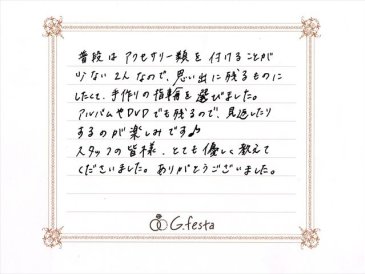 普段はアクセサリー類を付けることが
少ない2人なので、思い出に残るものに
したくて、手作りの指輪を選びました。
アルバムやDVDでも残るので、見返したり
するのが楽しみです♪
スタッフの皆様、とても優しく教えて
くださいました。ありがとうございました。
G.festa